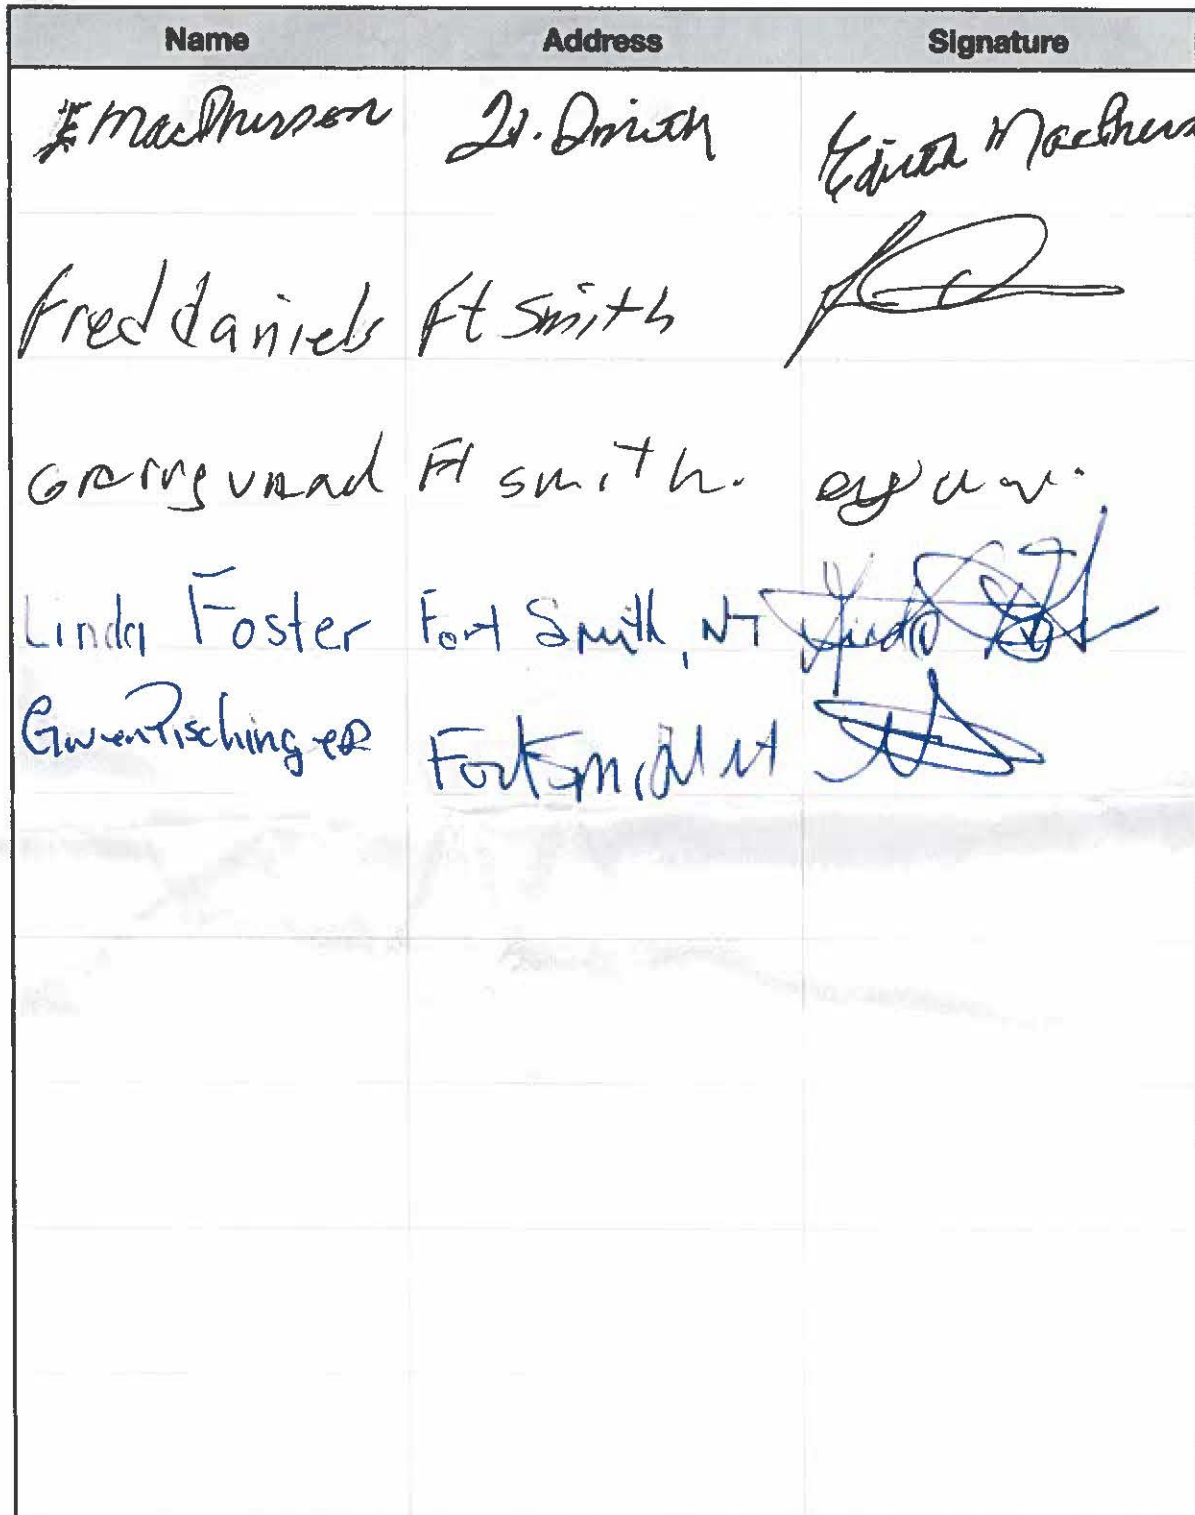 Name Address Signature
E MacPherson Ft. Smith Edith MacPhers
Fred daniels Ft Smith
Ft smith.
Linda Foster Fort Smith, NT Linda
Gwen Pischinger Fort Smith NT